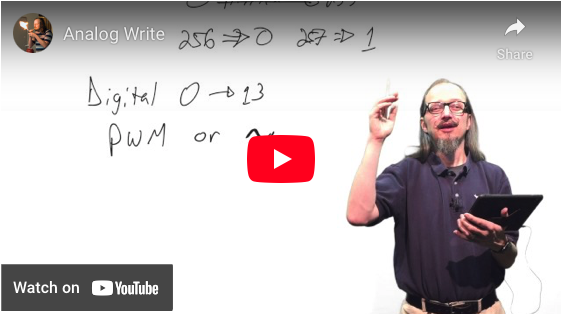 Analog Write
Share
256 => 0 257 => 1
Digital 0 → 13
PWM or ~
Watch on YouTube